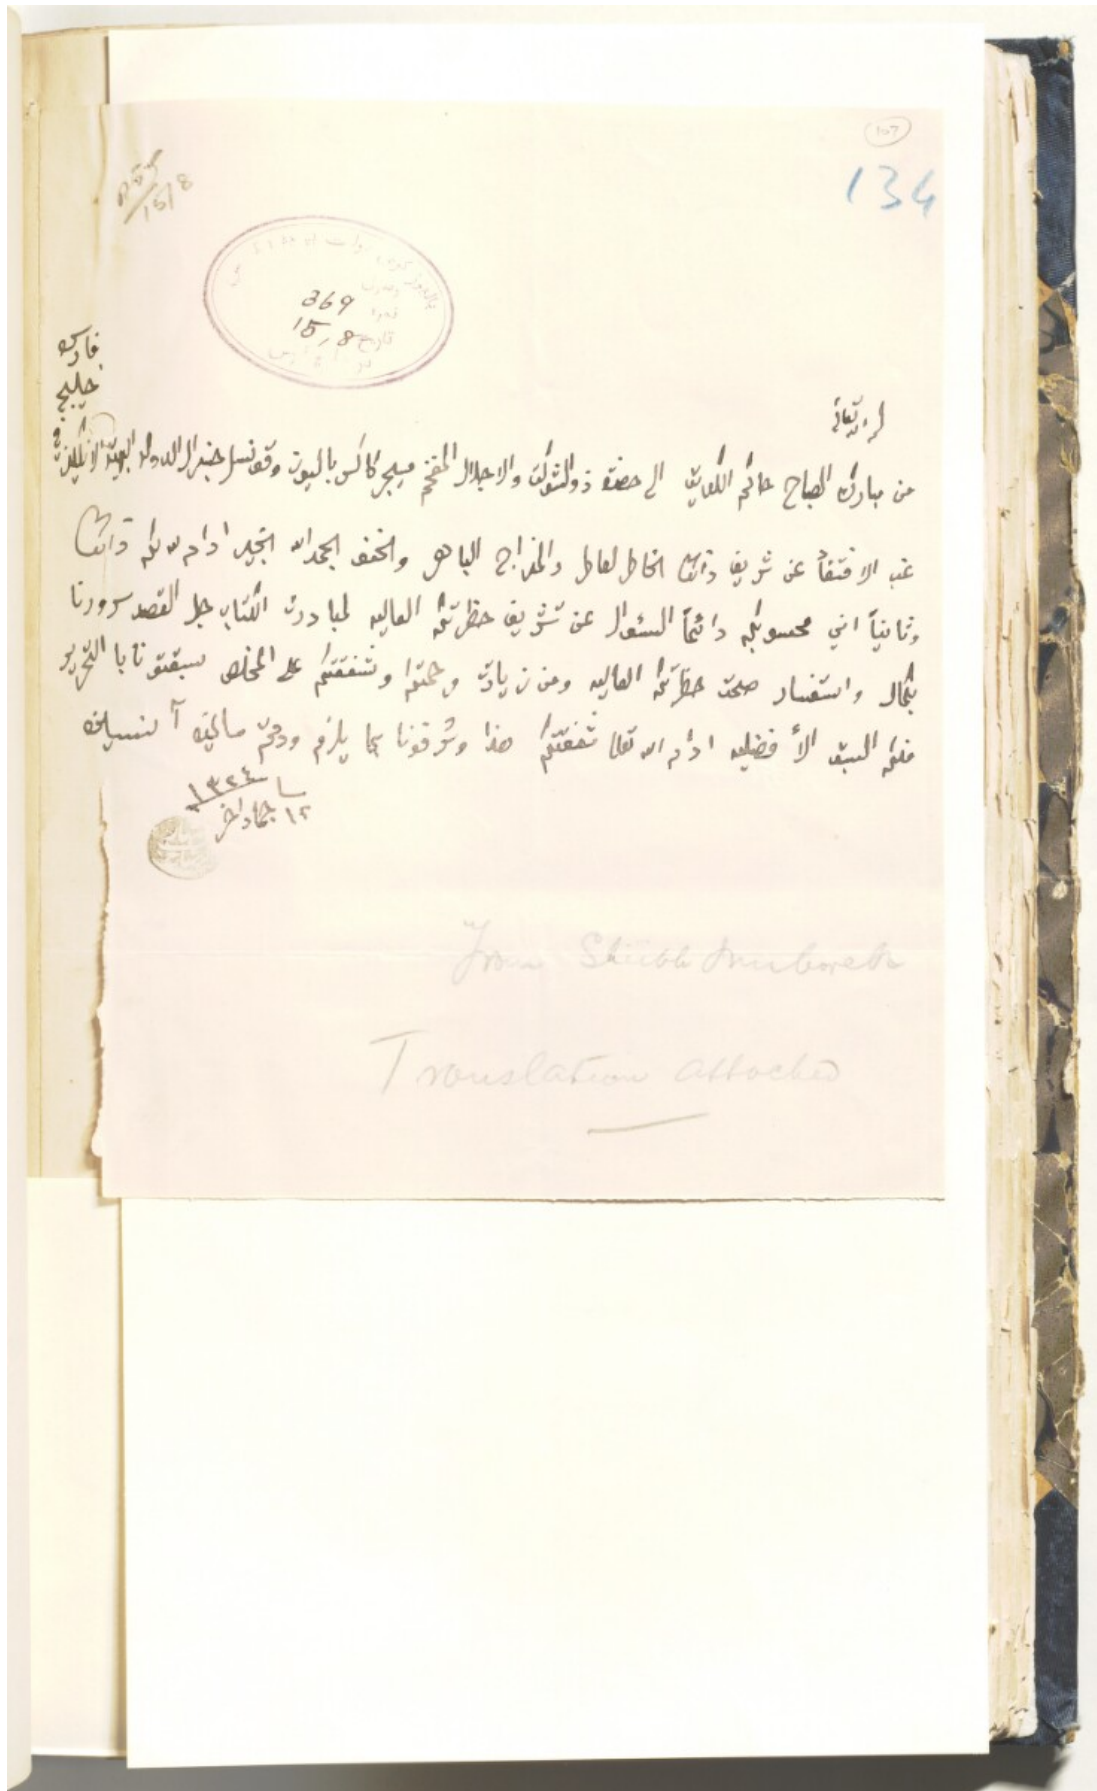 107
134
15/8
369
15/8
لله تعالى
من مبارك الصباح حاكم الكويت الى حضرة ذو الشوكت والاجلال المفخم ميجر كاكس باليوز وقونسل جنرال الدولة البهية الانكليزية في
خليج
فارس
غب الافتقأ عن شريف ذاتكم الخاطر العاطر والمزاج الباهر والخف بحمد الله بخير ادام لله لكم ذالك
وثانياً اني محسوبكم دائماً السئوال عن تشريف حظرتكم العاليه لمبادرت الكتاب جل القصد سرورنا
بكمال واستفسار صحت حظرتكم العاليه ومن زيادت رحمتكم وشفقتكم على المخلص سبقتونا با التحرير
فلكم السبق الأفضليه ادام الله تعالى شفقتكم هذا وشرفونا بما يلزم ودمتم سالمين
١٢ جماد اخر ١٣٢٤
From Shiekh Muborek
Translation attached